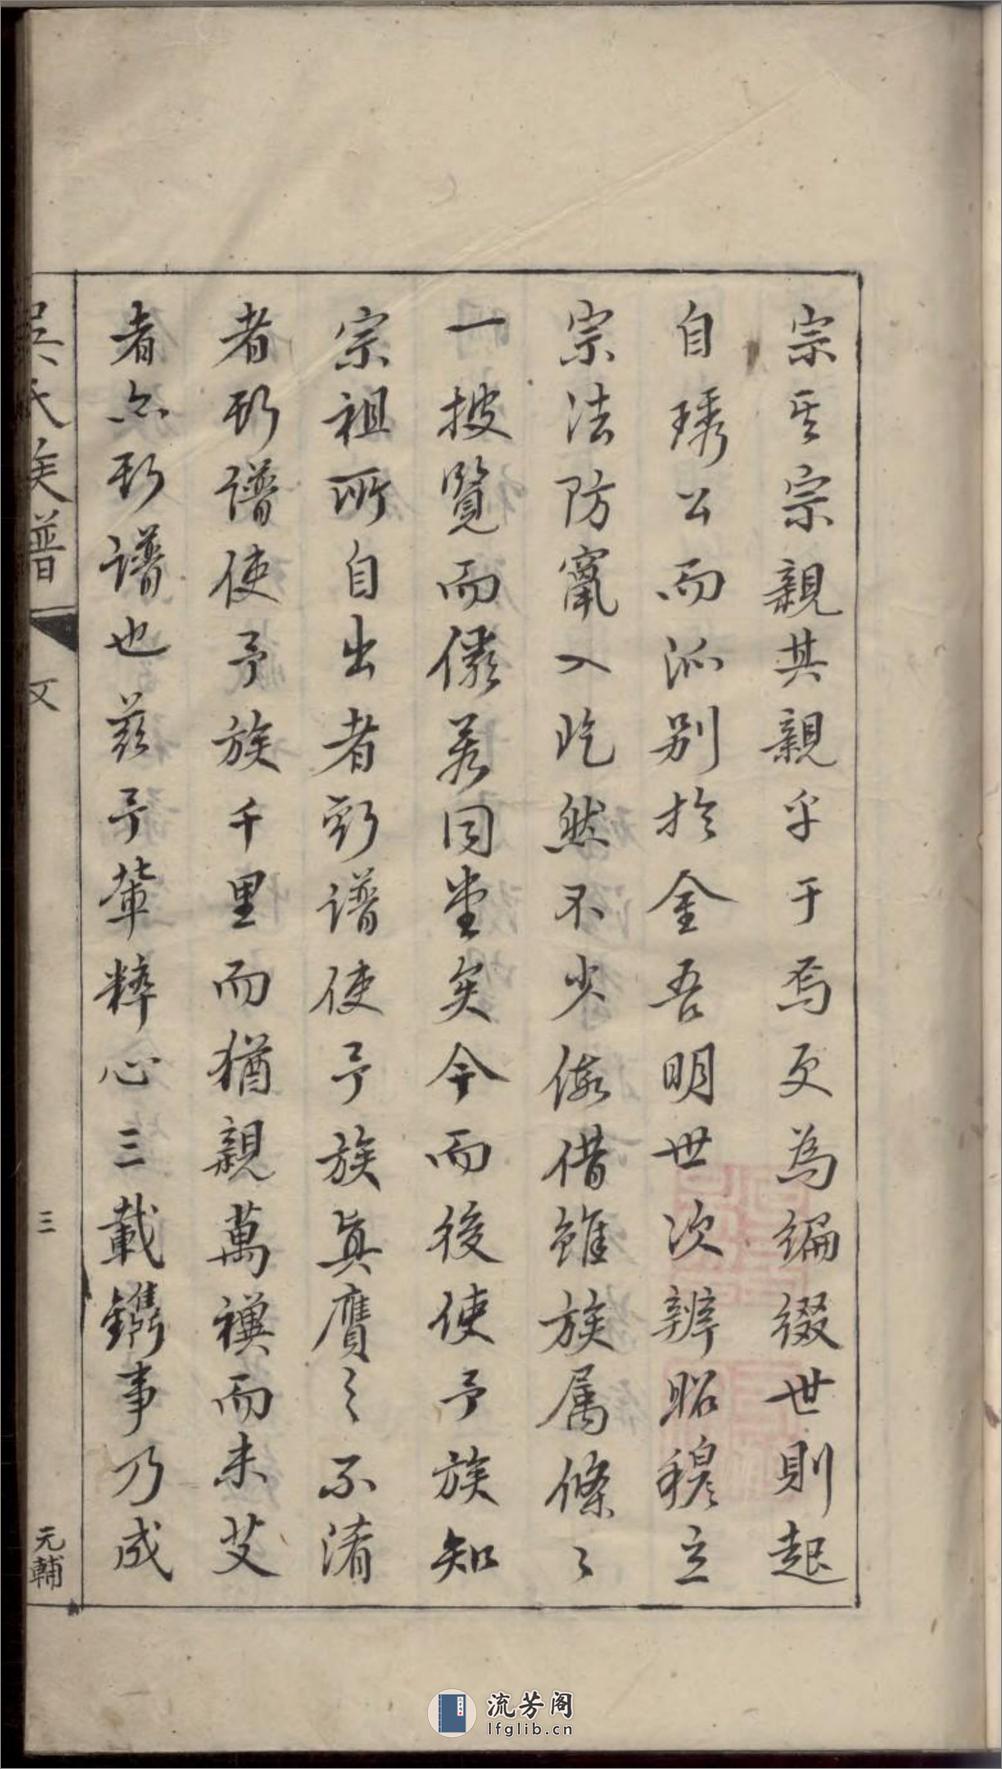 宗其宗親其親乎于焉更為編綴世則起
自琇公而派別於金吾明世次辨昭穆立
宗法防竄入訖然不少假借雖族属條〻
一披覽而儼若同堂矣今而後使予族知
宗祖所自出者斯譜使予族真贗〻不淆
者斯譜使予族千里而猶親萬禩而未艾
者亦斯譜也茲予輩粹心三載鐫事乃成
吳氏族譜
文
三
元輔
流芳阁
lfglib.cn